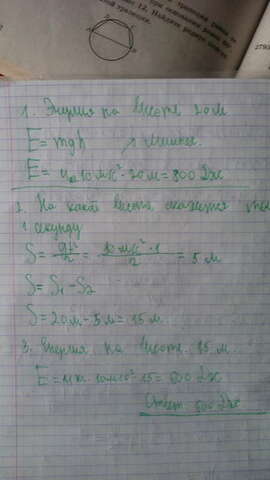 1. Энергия на высоте 20 м
E = mgh
E = 4 · 10 м/с² · 20 м = 800 Дж
2. На какой высоте окажется
1 секунду
S = gt²/2 = 10 м/с² · 1/2 = 5 м
S = S₁ - S₂
S = 20 м - 5 м = 15 м
3. Энергия на высоте 15 м.
E = 4 кг · 10 м/с² · 15 = 600 Дж
Ответ 600 Дж